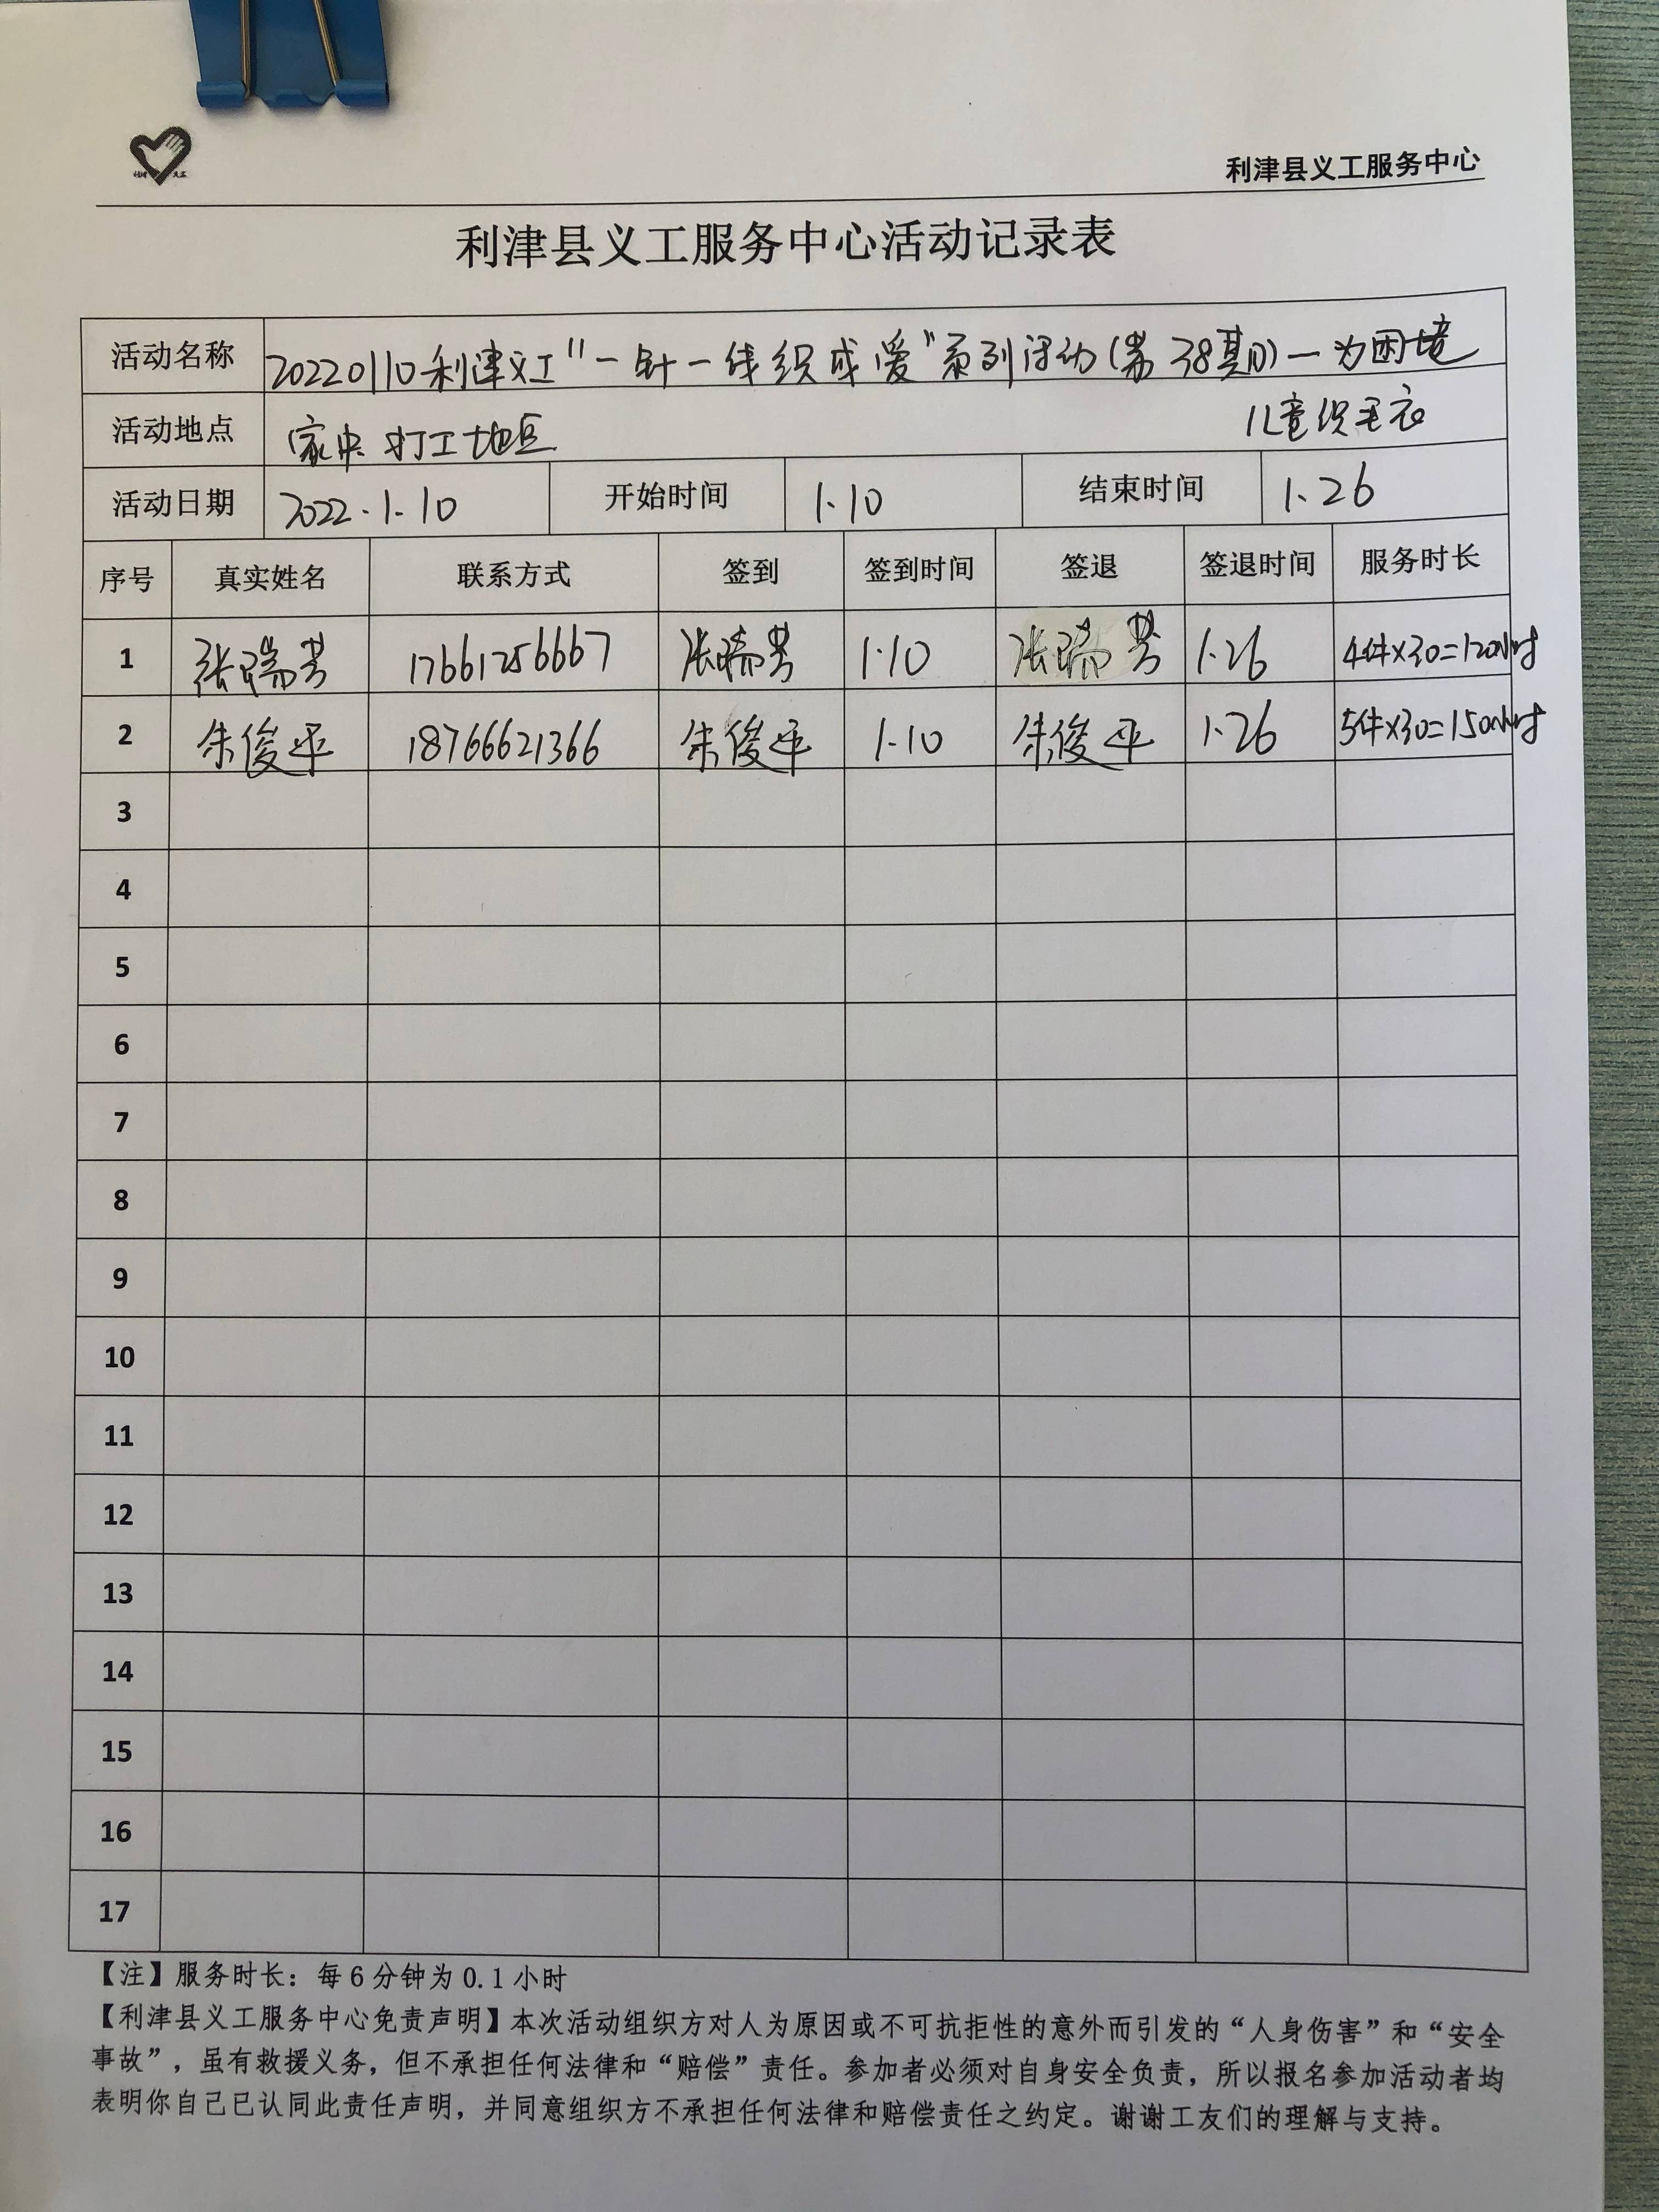 利津县义工服务中心
利津县义工服务中心活动记录表
活动名称 20220110利津义工"一针一线织成爱"系列活动(第38期)—为困境
儿童织毛衣
活动地点 家中 打工地区
活动日期 2022.1.10 开始时间 1.10 结束时间 1.26
序号 真实姓名 联系方式 签到 签到时间 签退 签退时间 服务时长
1 张瑞芳 17661256667 张瑞芳 1.10 张瑞芳 1.26 4件×30=120小时
2 朱俊平 18766621366 朱俊平 1.10 朱俊平 1.26 5件×30=150小时
3
4
5
6
7
8
9
10
11
12
13
14
15
16
17
【注】服务时长：每6分钟为0.1小时
【利津县义工服务中心免责声明】本次活动组织方对人为原因或不可抗拒性的意外而引发的“人身伤害”和“安全
事故”，虽有救援义务，但不承担任何法律和“赔偿”责任。参加者必须对自身安全负责，所以报名参加活动者均
表明你自己已认同此责任声明，并同意组织方不承担任何法律和赔偿责任之约定。谢谢工友们的理解与支持。